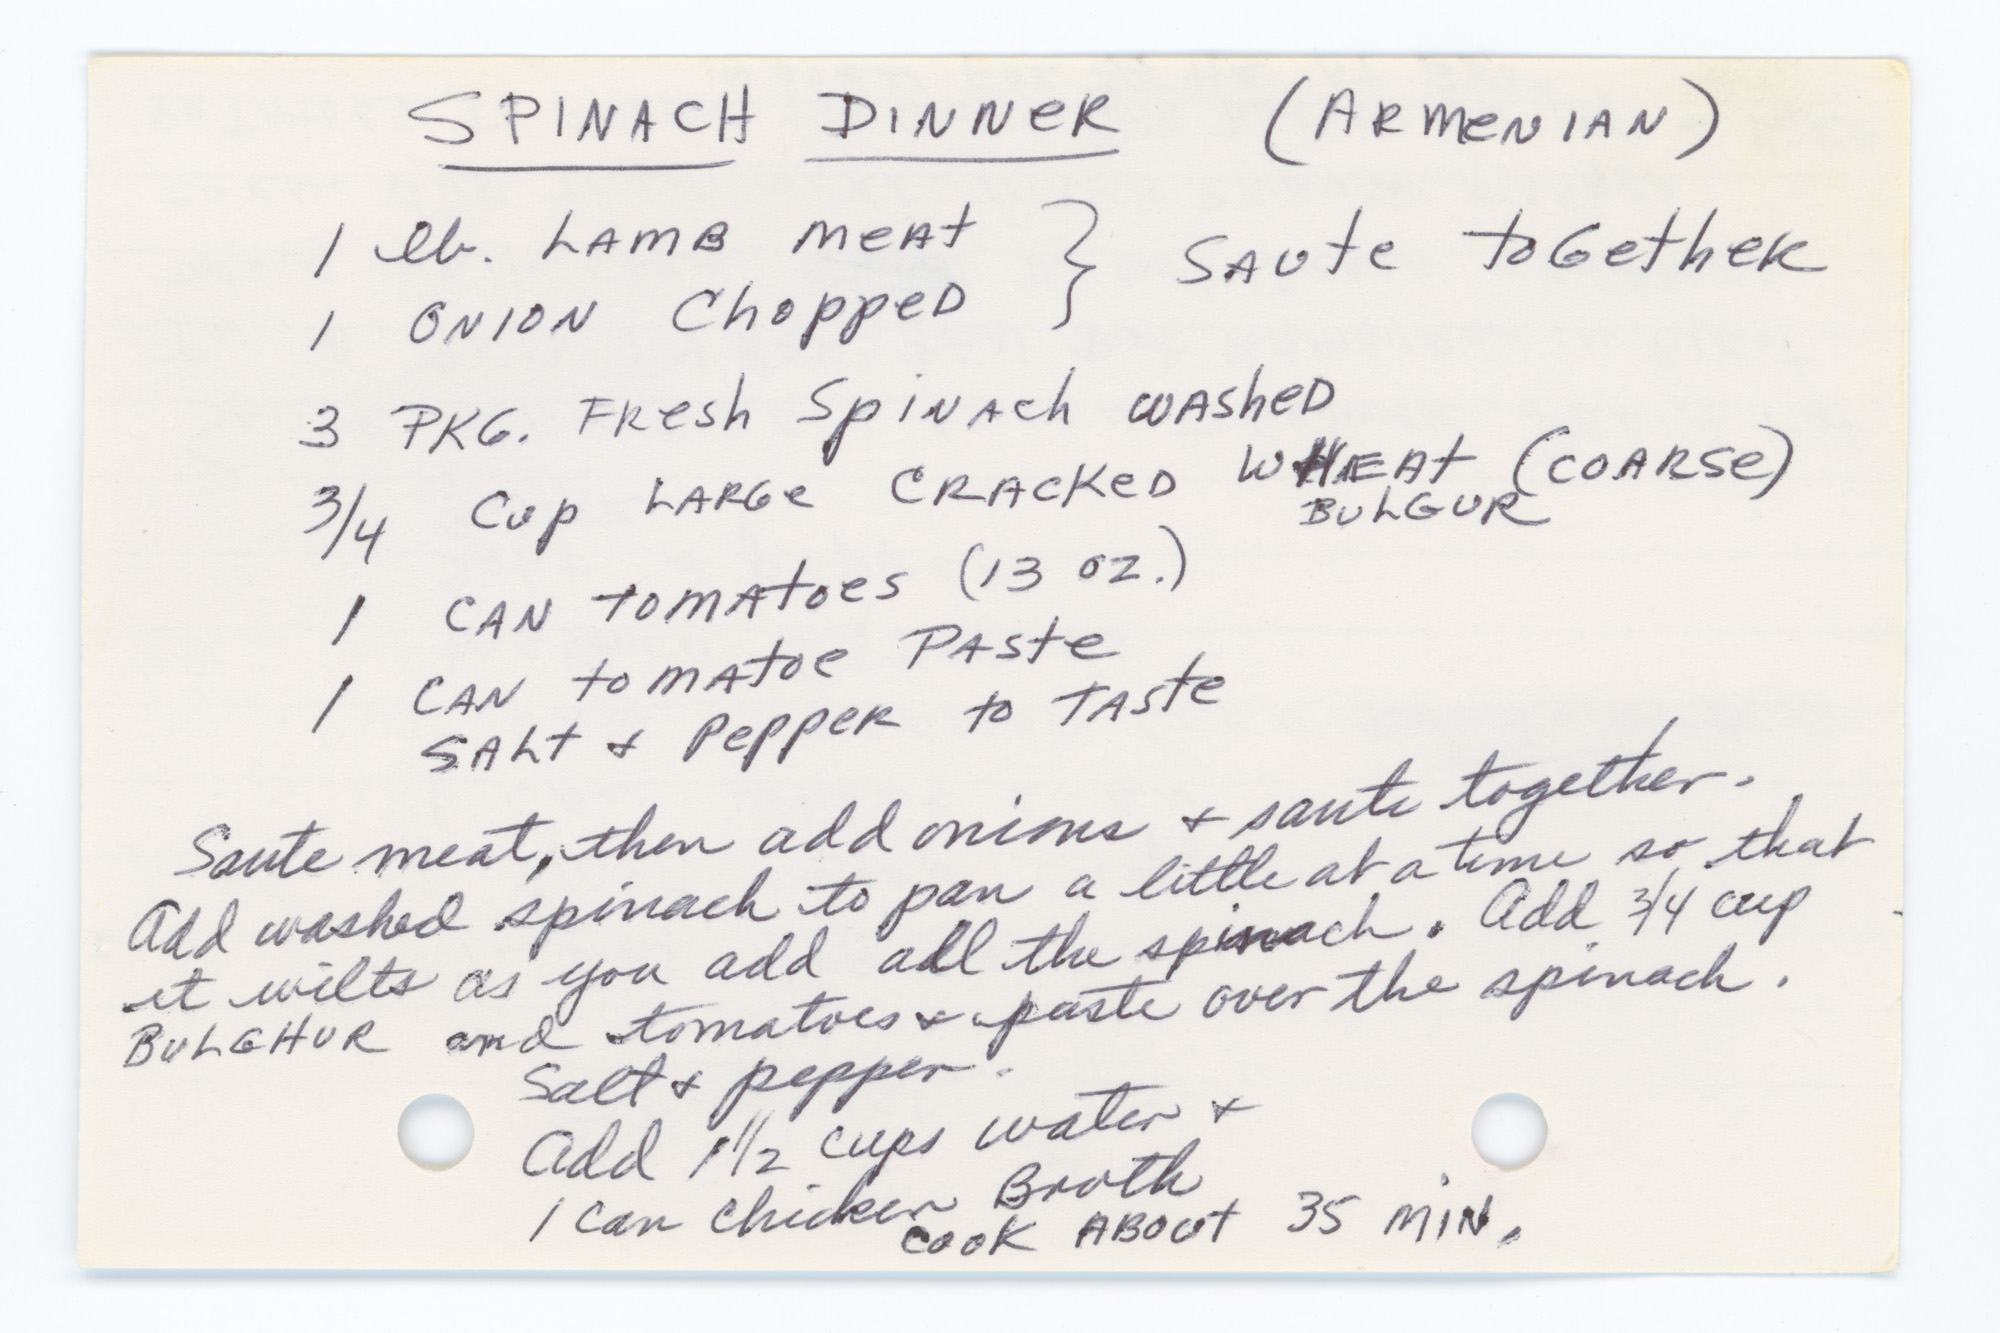 SPINACH DINNER (ARMENIAN)
1 lb. LAMB MEAT } SAUTE TOGETHER
1 ONION Chopped
3 PKG. FRESH SpINACH WASHED
3/4 Cup LARGE CRACKED WHEAT (COARSE)
BULGUR
1 CAN TOMATOES (13 OZ.)
1 CAN TOMATOE PASTE
SALT & PEPPER TO TASTE
Saute meat, then add onions & saute together.
Add washed spinach to pan a little at a time so that
it wilts as you add all the spinach. Add 3/4 cup
BULGHUR and tomatoes & paste over the spinach.
Salt & pepper.
Add 1 1/2 cups water &
1 can chicken Broth
COOK ABOUT 35 MIN.